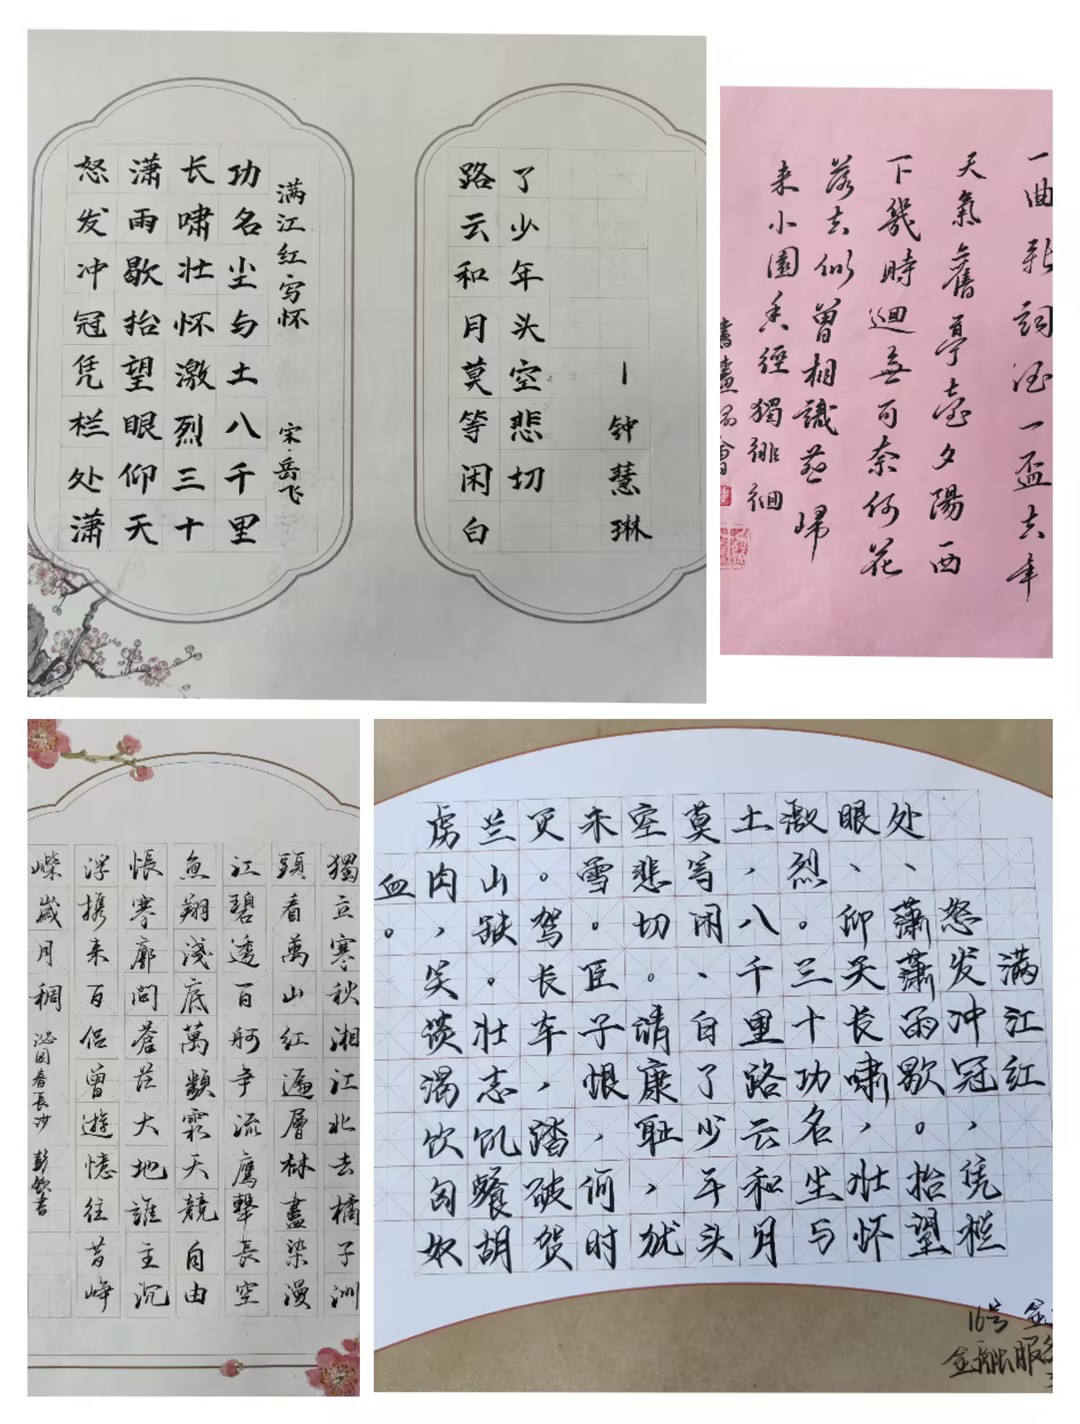 满江红写怀 宋·岳飞
怒发冲冠凭栏处潇
潇雨歇抬望眼仰天
长啸壮怀激烈三十
功名尘与土八千里
路云和月莫等闲白
了少年头空悲切
—钟慧琳
一曲新詞酒一盃去年
天氣舊亭臺夕陽西
下幾時迴無可奈何花
落去似曾相識燕歸
来小園香徑獨徘徊
獨立寒秋湘江北去橘子洲
頭看萬山紅遍層林盡染漫
江碧透百舸争流鷹擊長空
魚翔淺底萬類霜天競自由
悵寥廓問蒼茫大地誰主沉
浮携来百侣曾遊憶往昔峥
嶸歲月稠 沁园春長沙
满江红
怒发冲冠，凭栏
处、萧萧雨歇。抬望
眼、仰天长啸，壮怀
激烈。三十功名尘与
土，八千里路云和月
莫等闲、白了少年头
空悲切。靖康耻，犹
未雪。臣子恨，何时
灭。驾长车，踏破贺
兰山缺。壮志饥餐胡
虏肉，笑谈渴饮匈奴
血。
16号 金
金融服